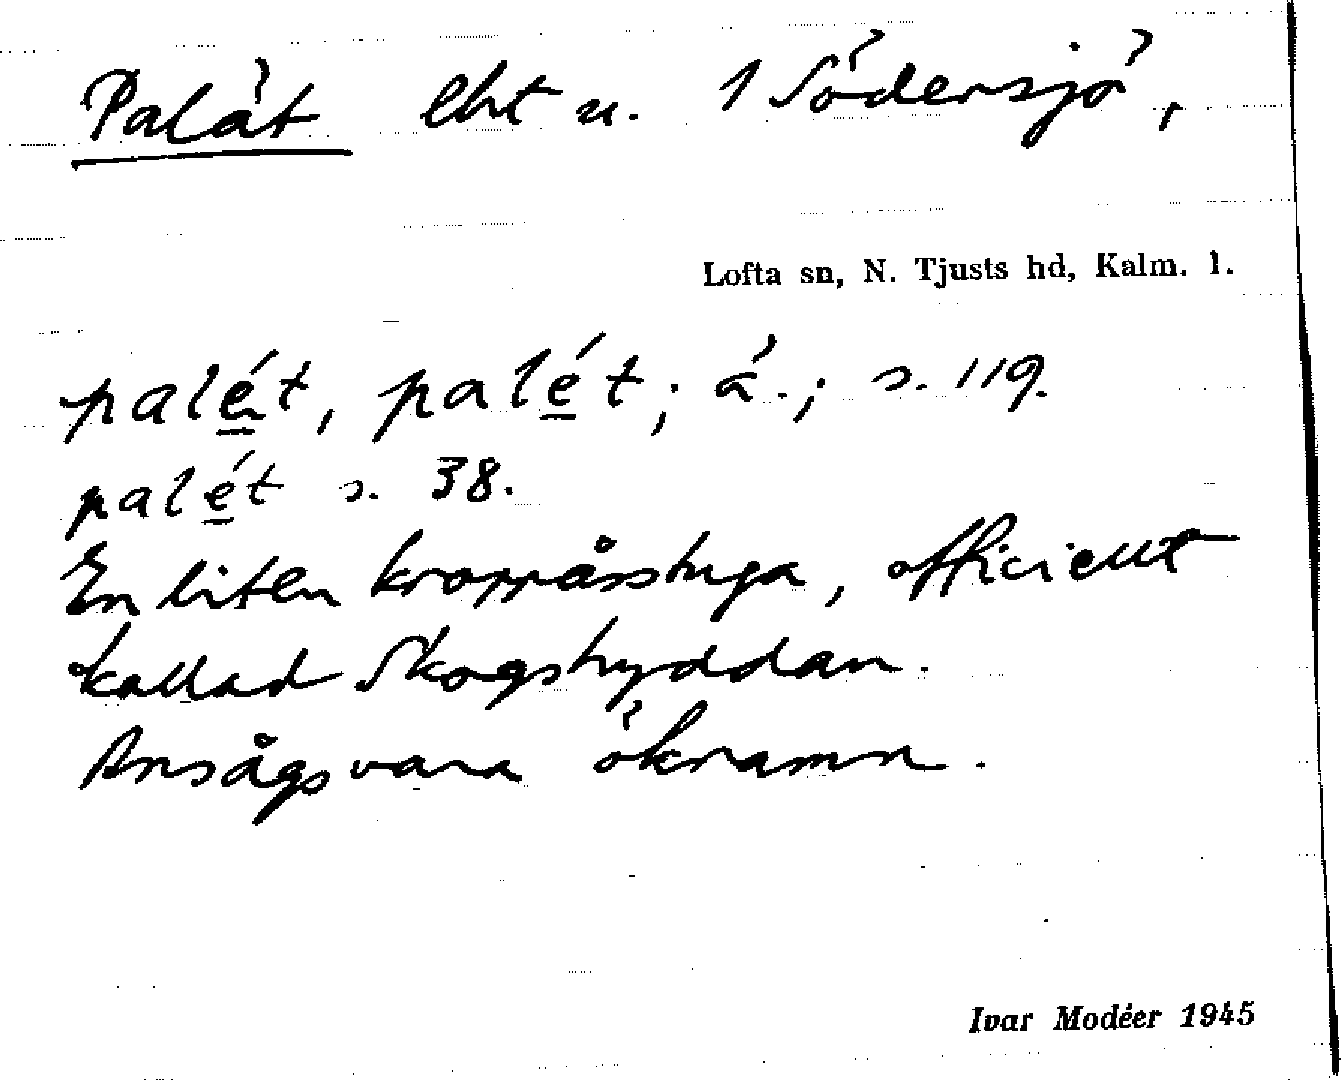 Palät lht u. 1 Södersjö,
Lofta sn, N. Tjusts hd, Kalm. l.
palét, palét; ä.; s. 119.
palét s. 38.
En liten kroppåsstuga, officiellt
kallad Skogshyddan.
Ansågs vara öknamn.
Ivar Modéer 1945